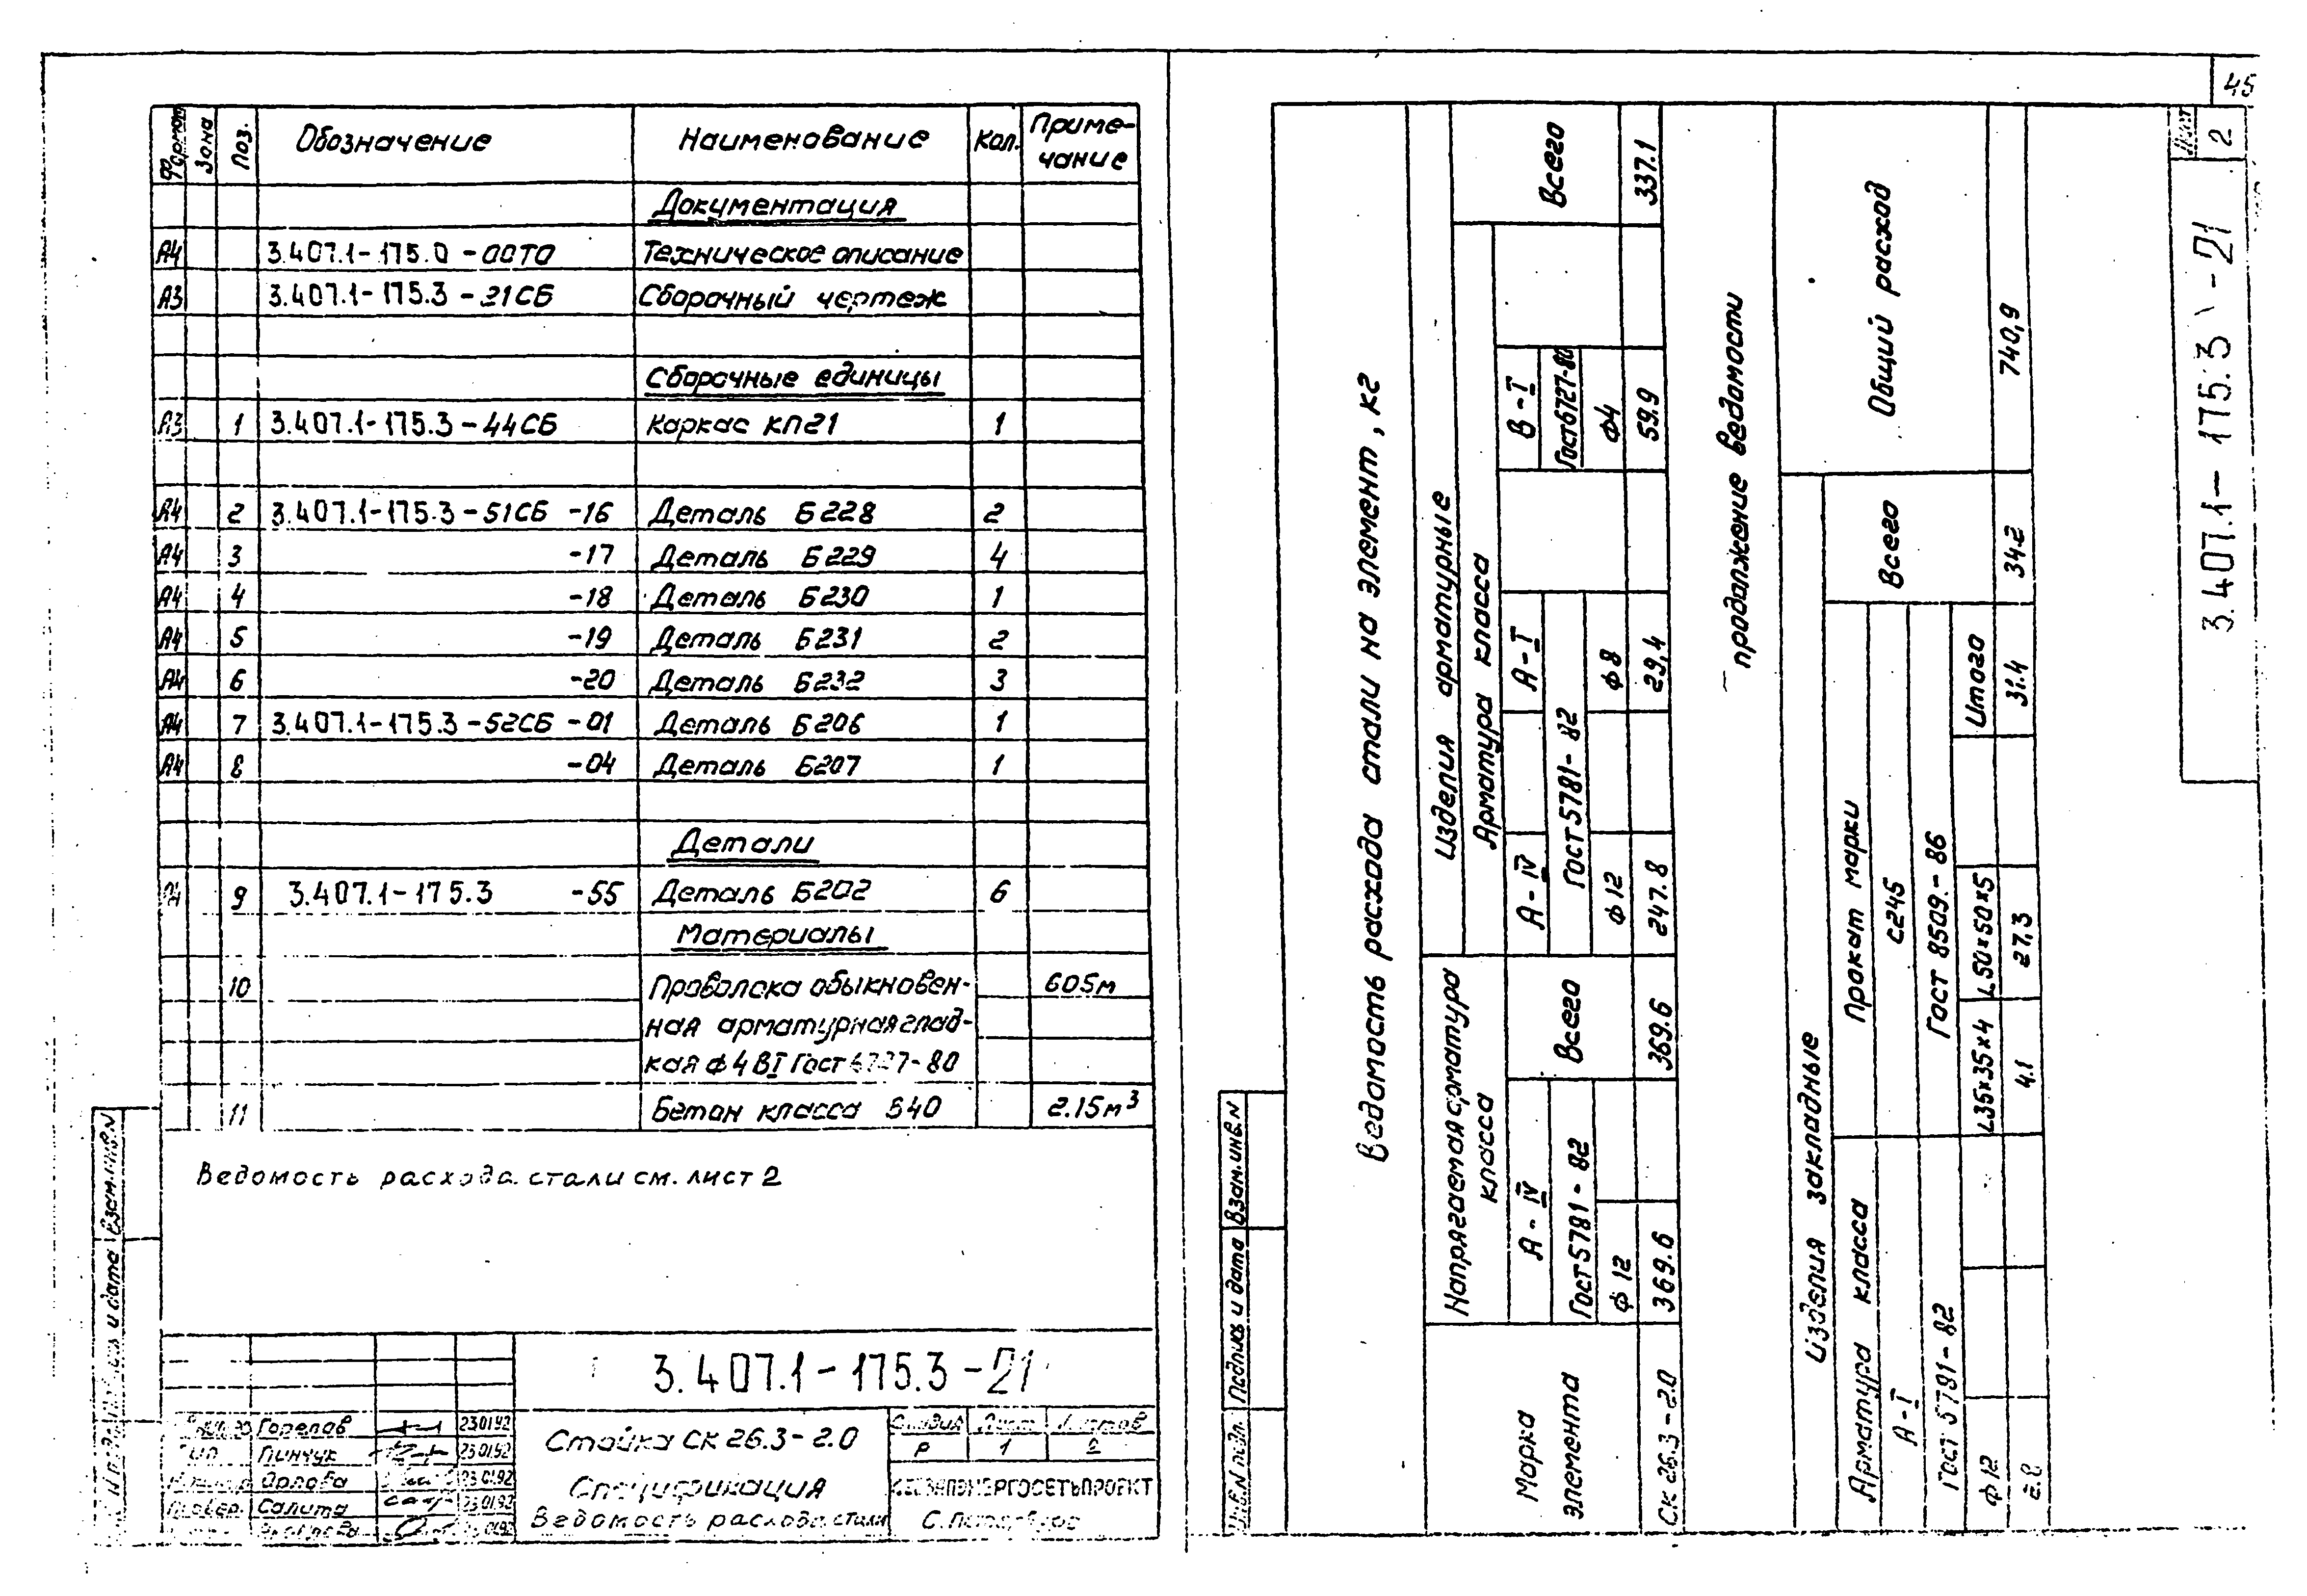 45
Формат Зона Поз. Обозначение Наименование Кол. Приме-
чание
Документация
А4 3.407.1-175.0-00ТО Техническое описание
А3 3.407.1-175.3-21СБ Сборочный чертеж
Сборочные единицы
А3 1 3.407.1-175.3-44СБ Каркас КП21 1
А4 2 3.407.1-175.3-51СБ -16 Деталь Б228 2
А4 3 -17 Деталь Б229 4
А4 4 -18 Деталь Б230 1
А4 5 -19 Деталь Б231 2
А4 6 -20 Деталь Б232 3
А4 7 3.407.1-175.3-52СБ -01 Деталь Б206 1
А4 8 -04 Деталь Б207 1
Детали
9 3.407.1-175.3 -55 Деталь Б202 6
Материалы
10 Проволока обыкновен- 605м
ная арматурная глад-
кая ф4 ВI Гост 6727-80
11 Бетон класса В40 2.15м³
Ведомость расхода стали см. лист 2
3.407.1-175.3-21
Горелов 23.01.92
ГИП Пинчук 23.01.92
Орлова 23.01.92
Провер. Салита 23.01.92
Стойка СК 26.3-2.0
Спецификация
Ведомость расхода стали
Стадия Лист Листов
Р 1 2
СЕВЗАПЭНЕРГОСЕТЬПРОЕКТ
С. Петербург
Взам.инв.N
и дата
Ведомость расхода стали на элемент, кг
Марка
элемента
Напрягаемая арматура
класса
А-IV
Гост 5781-82
ф12
Всего
Изделия арматурные
Арматура класса
А-IV А-I В-I
Гост 5781-82 Гост 6727-80
ф12 ф8 ф4
Всего
СК 26.3-2.0 369.6 369.6 247.8 29,4 59.9 337.1
продолжение ведомости
Изделия закладные
Общий расход
Арматура класса
А-I
Гост 5781-82
ф12
Прокат марки
С245
Гост 8509-86
L35×35×4 L50×50×5 Итого
Всего
2.8 4.1 27,3 31.4 34.2 740,9
Инв.N подл. Подпись и дата Взам.инв.N
3.407.1-175.3-21
Лист
2